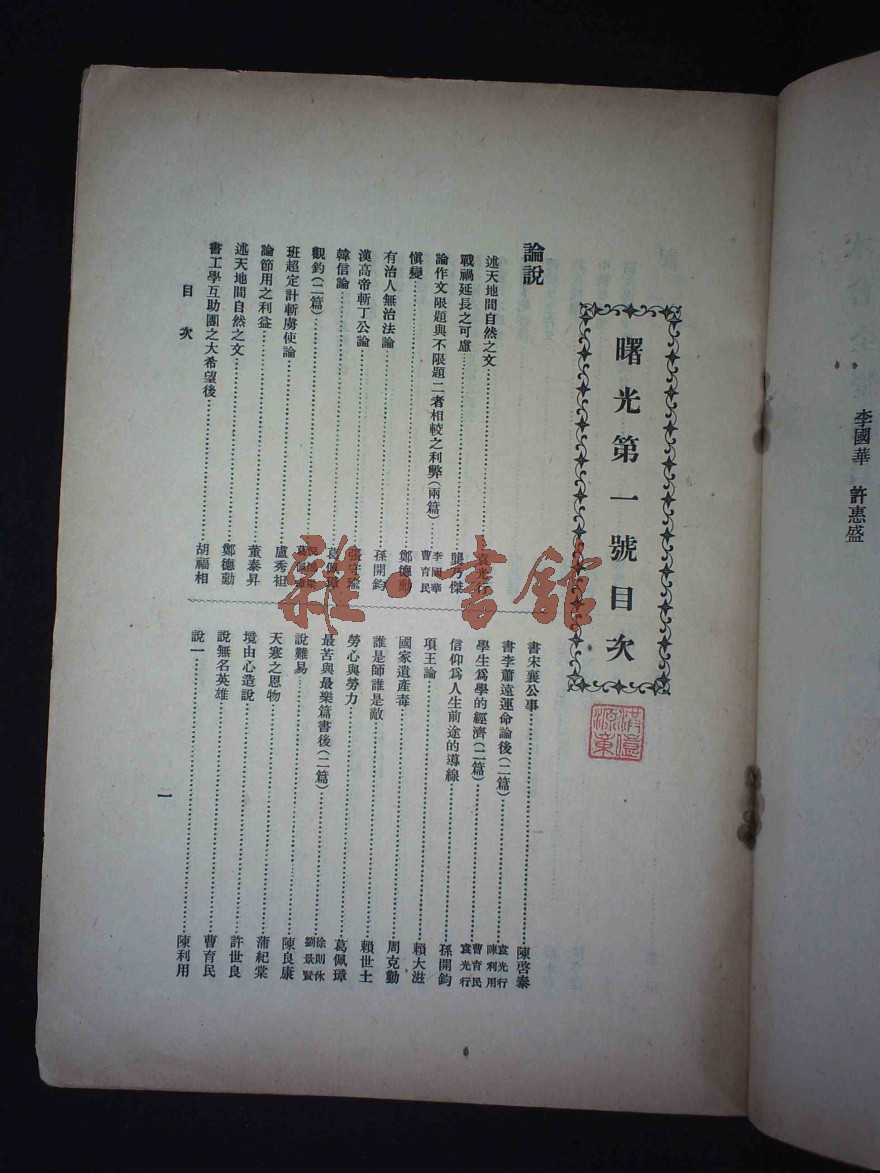 李國華 許惠盛
曙光第一號目次
論說
述天地間自然之文……袁光行
戰禍延長之可慮……龔乃傑
論作文限題與不限題二者相較之利弊(兩篇)……李國華 曹育民
慎變……鄭德勳
有治人無治法論……孫開鈞
漢高帝斬丁公論……張守瑜
韓信論……葛佩璋
觀釣(二篇)……葛佩璋
班超定計斬虜使論……盧秀祖
論節用之利益……董泰昇
述天地間自然之文……鄭德勳
書工學互助團之大希望後……胡福相
書宋襄公事……陳啓泰
書李蕭遠運命論後(二篇)……袁光行 陳利用
學生爲學的經濟(二篇)……曹育民 袁光行
信仰爲人生前途的導線……孫開鈞
項王論……賴大滋
國家遺產毒……周克勤
誰是師誰是敵……賴世土
勞心與勞力……葛佩璋
最苦與最樂篇書後(二篇)……徐則休 劉景賢
說難易……陳良康
天寒之恩物……蒲紀棠
境由心造說……許世良
說無名英雄……曹育民
說一……陳利用
目次
一
雜·書館